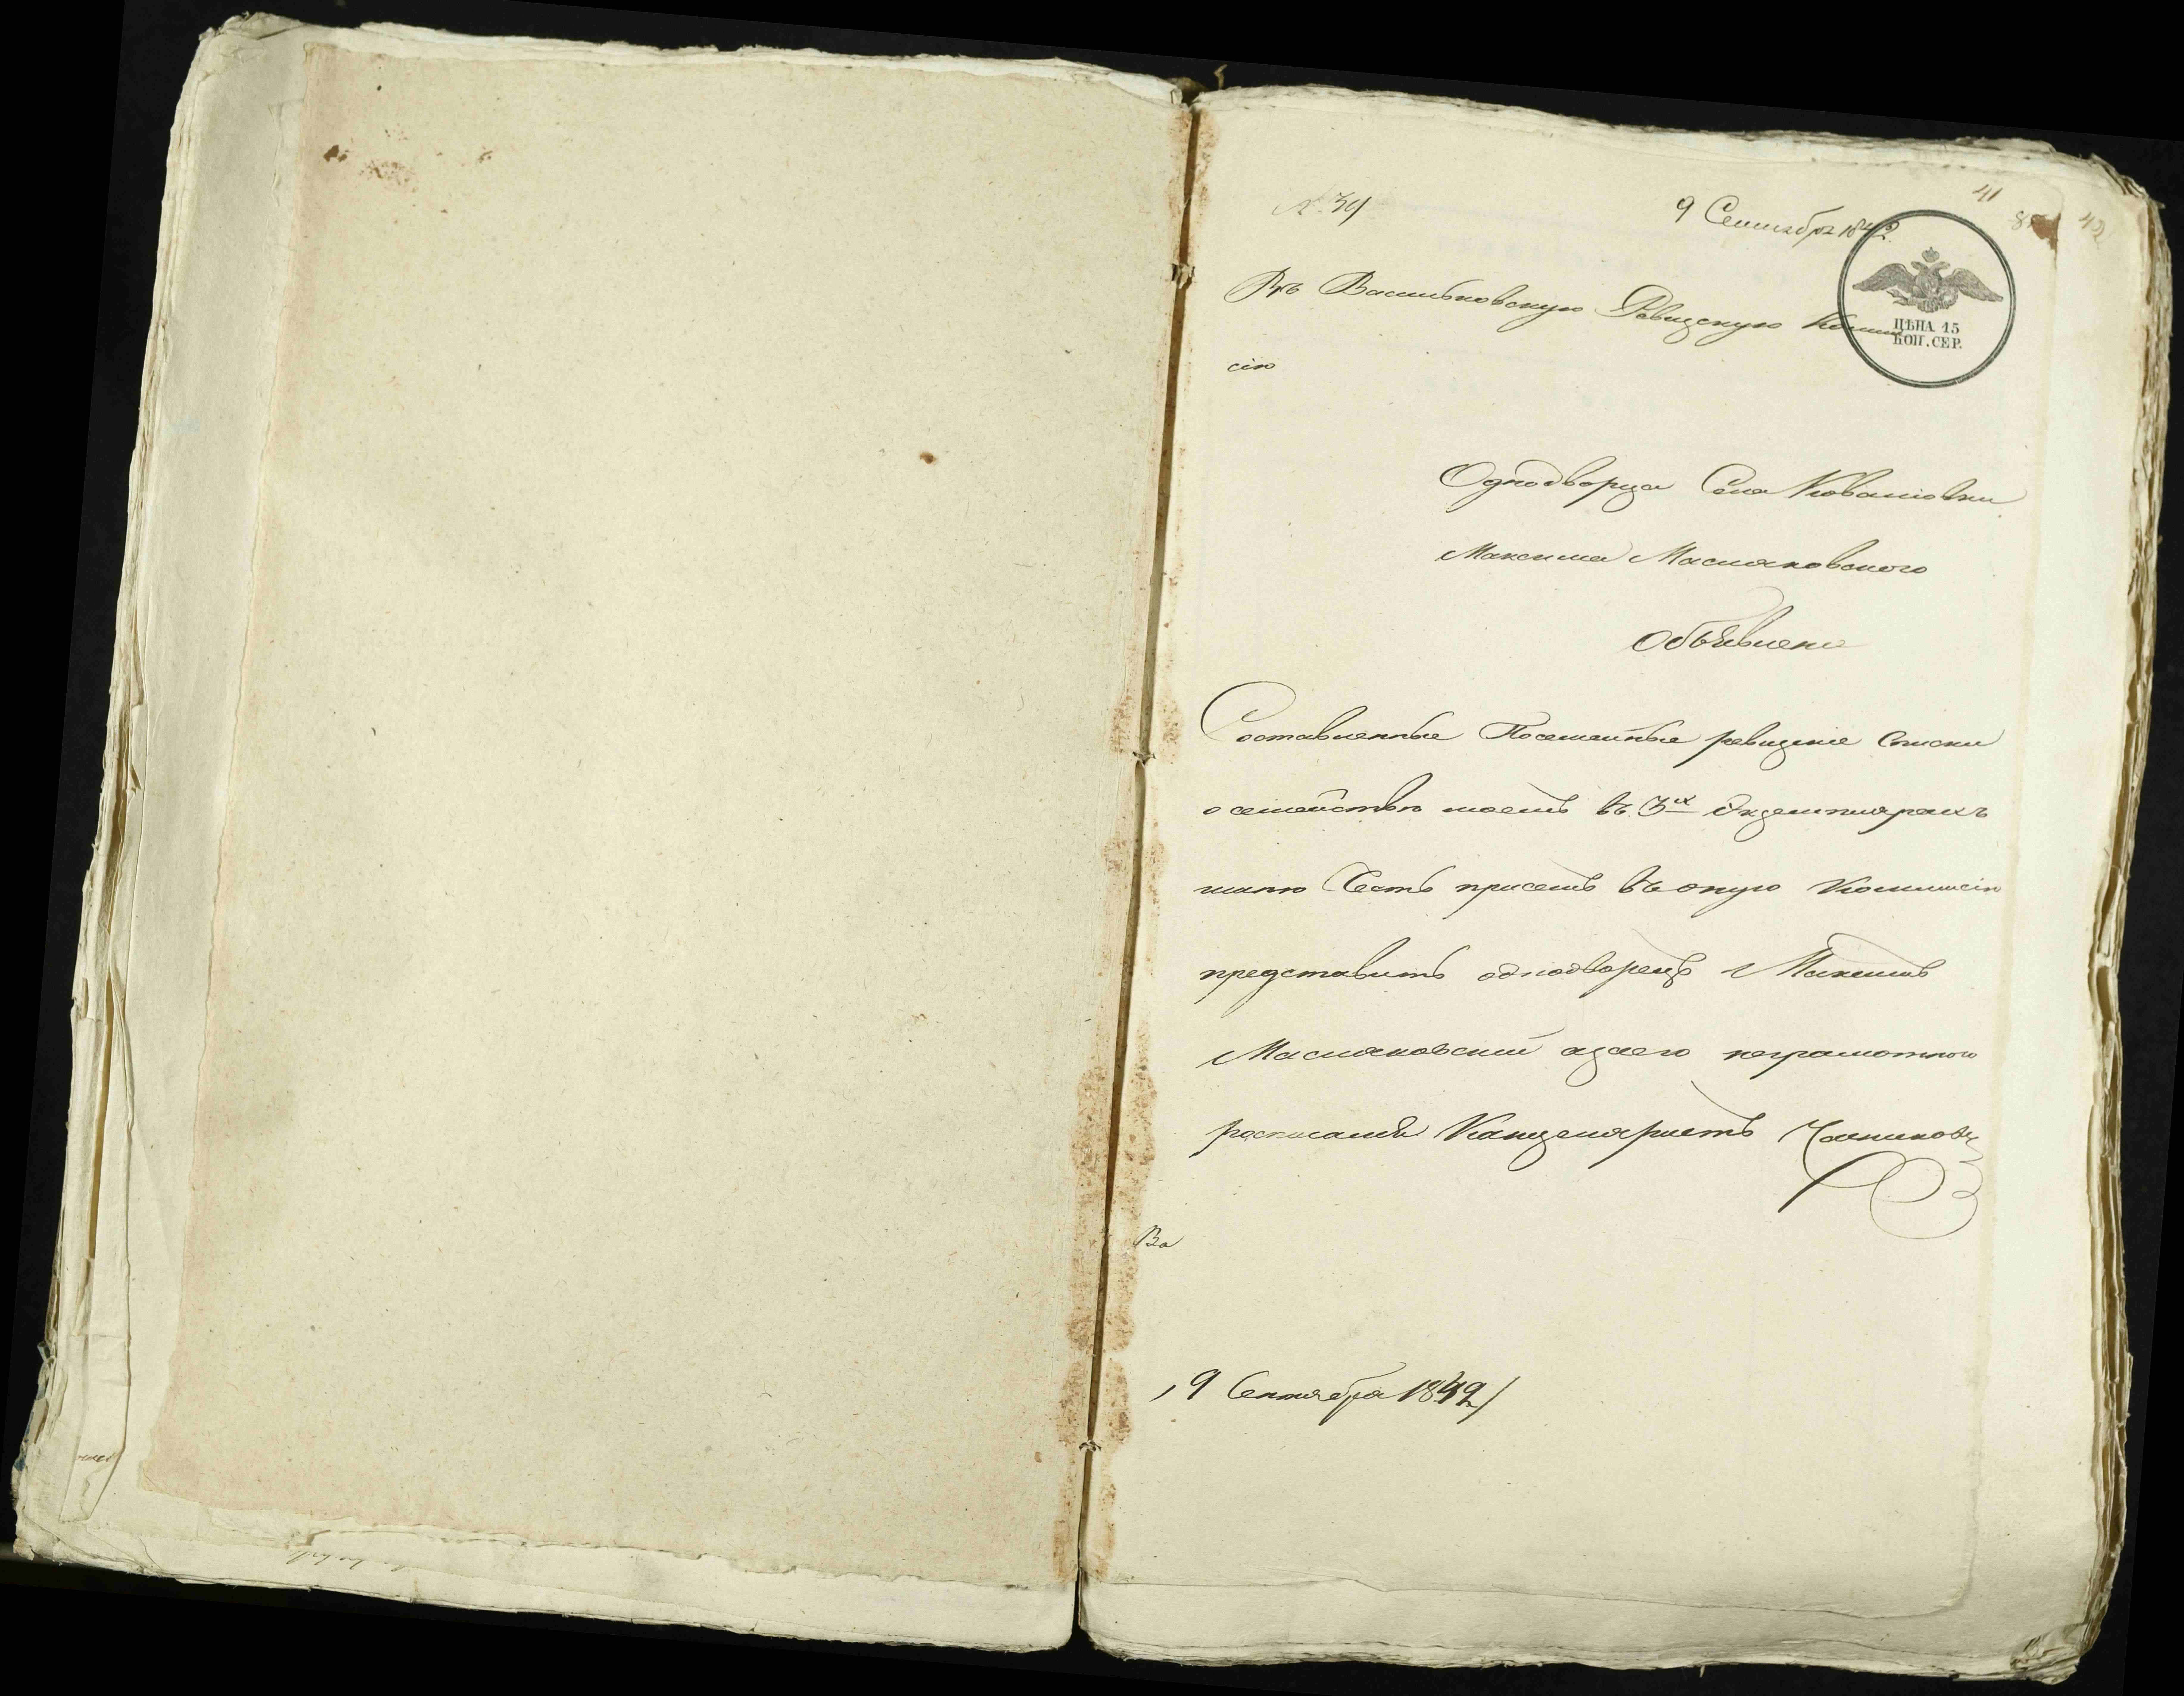 № 39
9 Сентября 1842.
41
42
Въ Васильковскую Ревизскую Комми
сію
ЦѢНА 15
КОП. СЕР.
Однодворца Села Ковалiовки
Максима Масляковского
Объявленіе
Составленные Посемейные ревизкіе Списки
о семействѣ моемъ въ 3х Экземплярахъ
имѣю Честь присемъ въ оную Коммисію
представить однодворецъ Максимъ
Масляковский азаего неграмотного
росписался Канцеляристъ
Ва
9 Сентября 1842